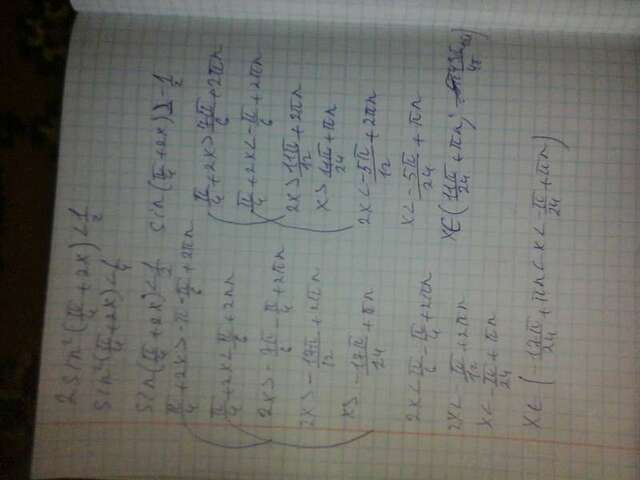 2sin²(π/4 + 2x) < 1/2
sin²(π/4 + 2x) < 1/4
sin(π/4 + 2x) < 1/2
π/4 + 2x > -π - π/6 + 2πn
π/4 + 2x < π/6 + 2πn
2x > -7π/6 - π/4 + 2πn
2x > -17π/12 + 2πn
x > -17π/24 + πn
2x < π/6 - π/4 + 2πn
2x < -π/12 + 2πn
x < -π/24 + πn
x ∈ (-17π/24 + πn < x < -π/24 + πn)
sin(π/4 + 2x) > -1/2
π/4 + 2x > 7π/6 + 2πn
π/4 + 2x < -π/6 + 2πn
2x > 11π/12 + 2πn
x > 11π/24 + πn
2x < -5π/12 + 2πn
x < -5π/24 + πn
x ∈ (11π/24 + πn;